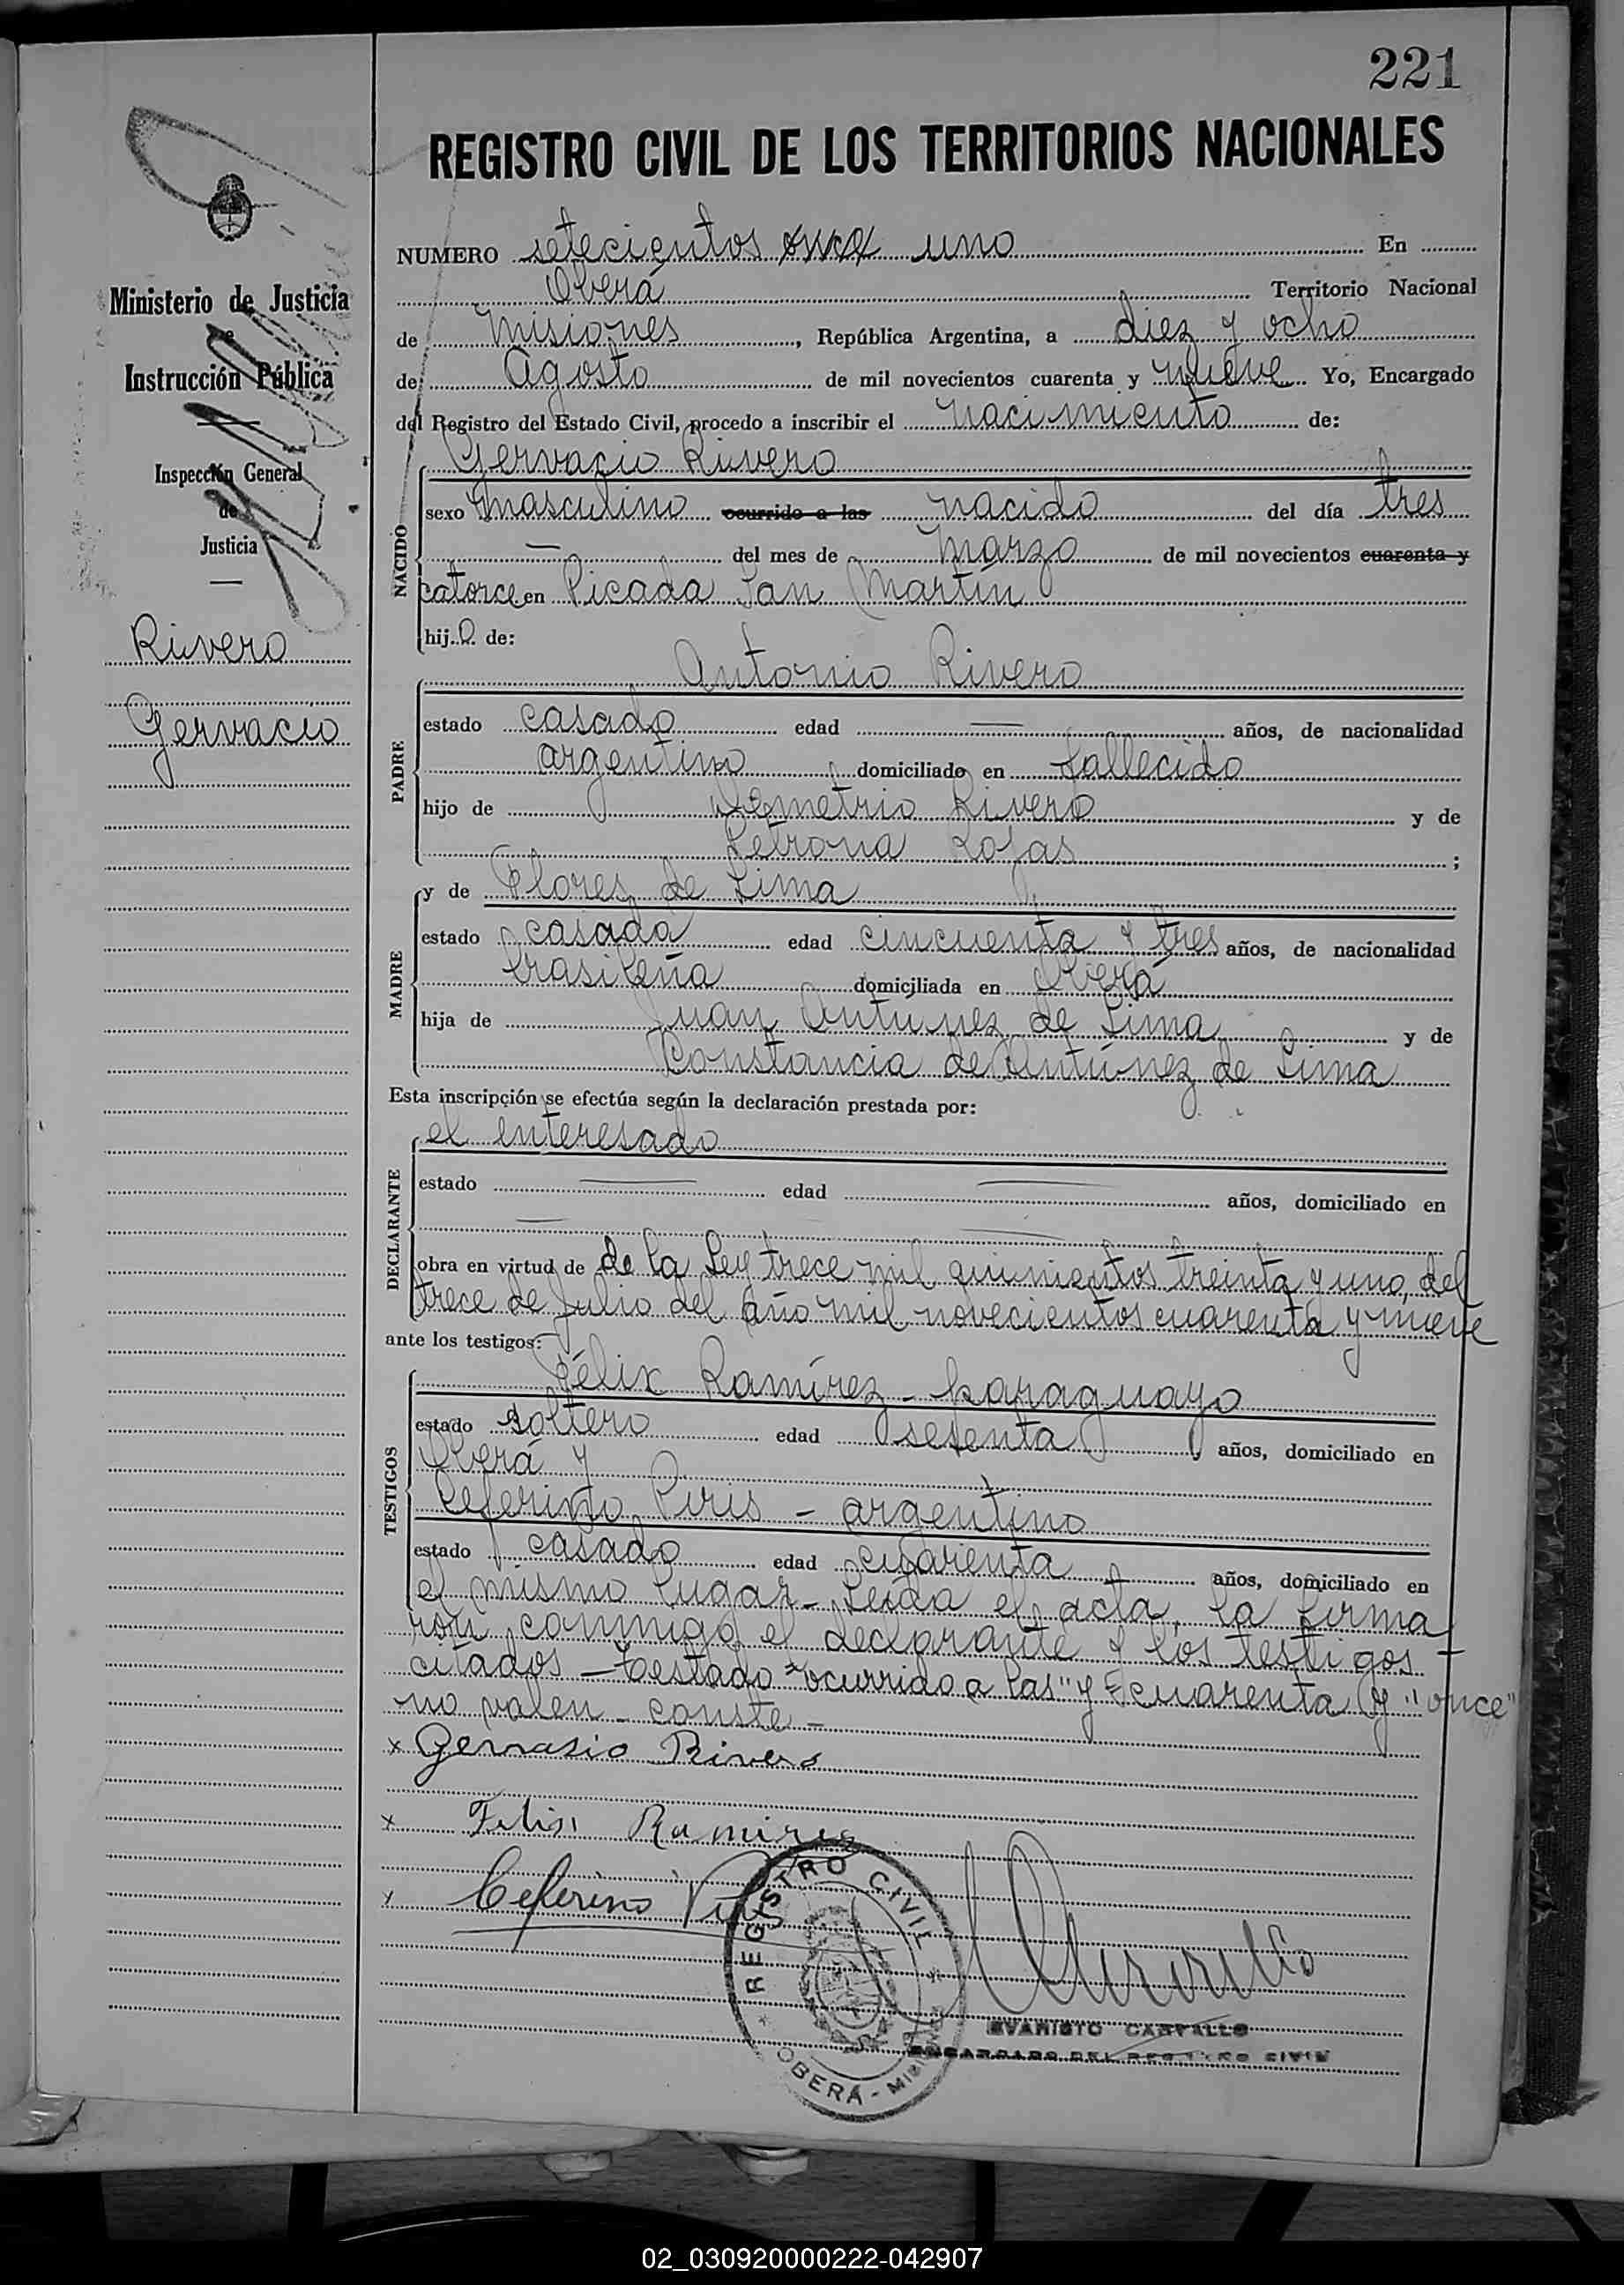 221
REGISTRO CIVIL DE LOS TERRITORIOS NACIONALES
Ministerio de Justicia
e
Instrucción Pública
Inspección General
de
Justicia
Rivero
Gervacio
NUMERO setecientos once uno En
Oberá Territorio Nacional
de Misiones, República Argentina, a diez y ocho
de Agosto de mil novecientos cuarenta y nueve Yo, Encargado
del Registro del Estado Civil, procedo a inscribir el nacimiento de:
NACIDO
Gervacio Rivero
sexo masculino ocurrido a las nacido del día tres
— del mes de marzo de mil novecientos cuarenta y
catorce en Picada San Martín
hijo de:
PADRE
Antonio Rivero
estado casado edad — años, de nacionalidad
argentino domiciliado en fallecido
hijo de Demetrio Rivero y de
Petrona Rojas ;
MADRE
y de Flores de Lima
estado casada edad cincuenta y tres años, de nacionalidad
brasileña domiciliada en Oberá
hija de Juan Antunez de Lima y de
Constancia de Antúnez de Lima
Esta inscripción se efectúa según la declaración prestada por:
DECLARANTE
el interesado
estado — edad — años, domiciliado en
— —
obra en virtud de de la Ley trece mil quinientos treinta y uno, del
trece de Julio del año mil novecientos cuarenta y nueve
ante los testigos:
TESTIGOS
Félix Ramírez - paraguayo
estado soltero edad sesenta años, domiciliado en
Oberá y
Ceferino Piris - argentino
estado casado edad cuarenta años, domiciliado en
el mismo lugar - Leída el acta, la firma
ron conmigo el declarante y los testigos -
citados - Testado "ocurrido a las" y "cuarenta y" "once"
no valen - conste -
x Gervasio Rivero
x Felisi Ramires
x Ceferino Piris
REGISTRO CIVIL
OBERÁ - MISIONES
EVARISTO CARVALLO
ENCARGADO DEL REGISTRO CIVIL
02_030920000222-042907